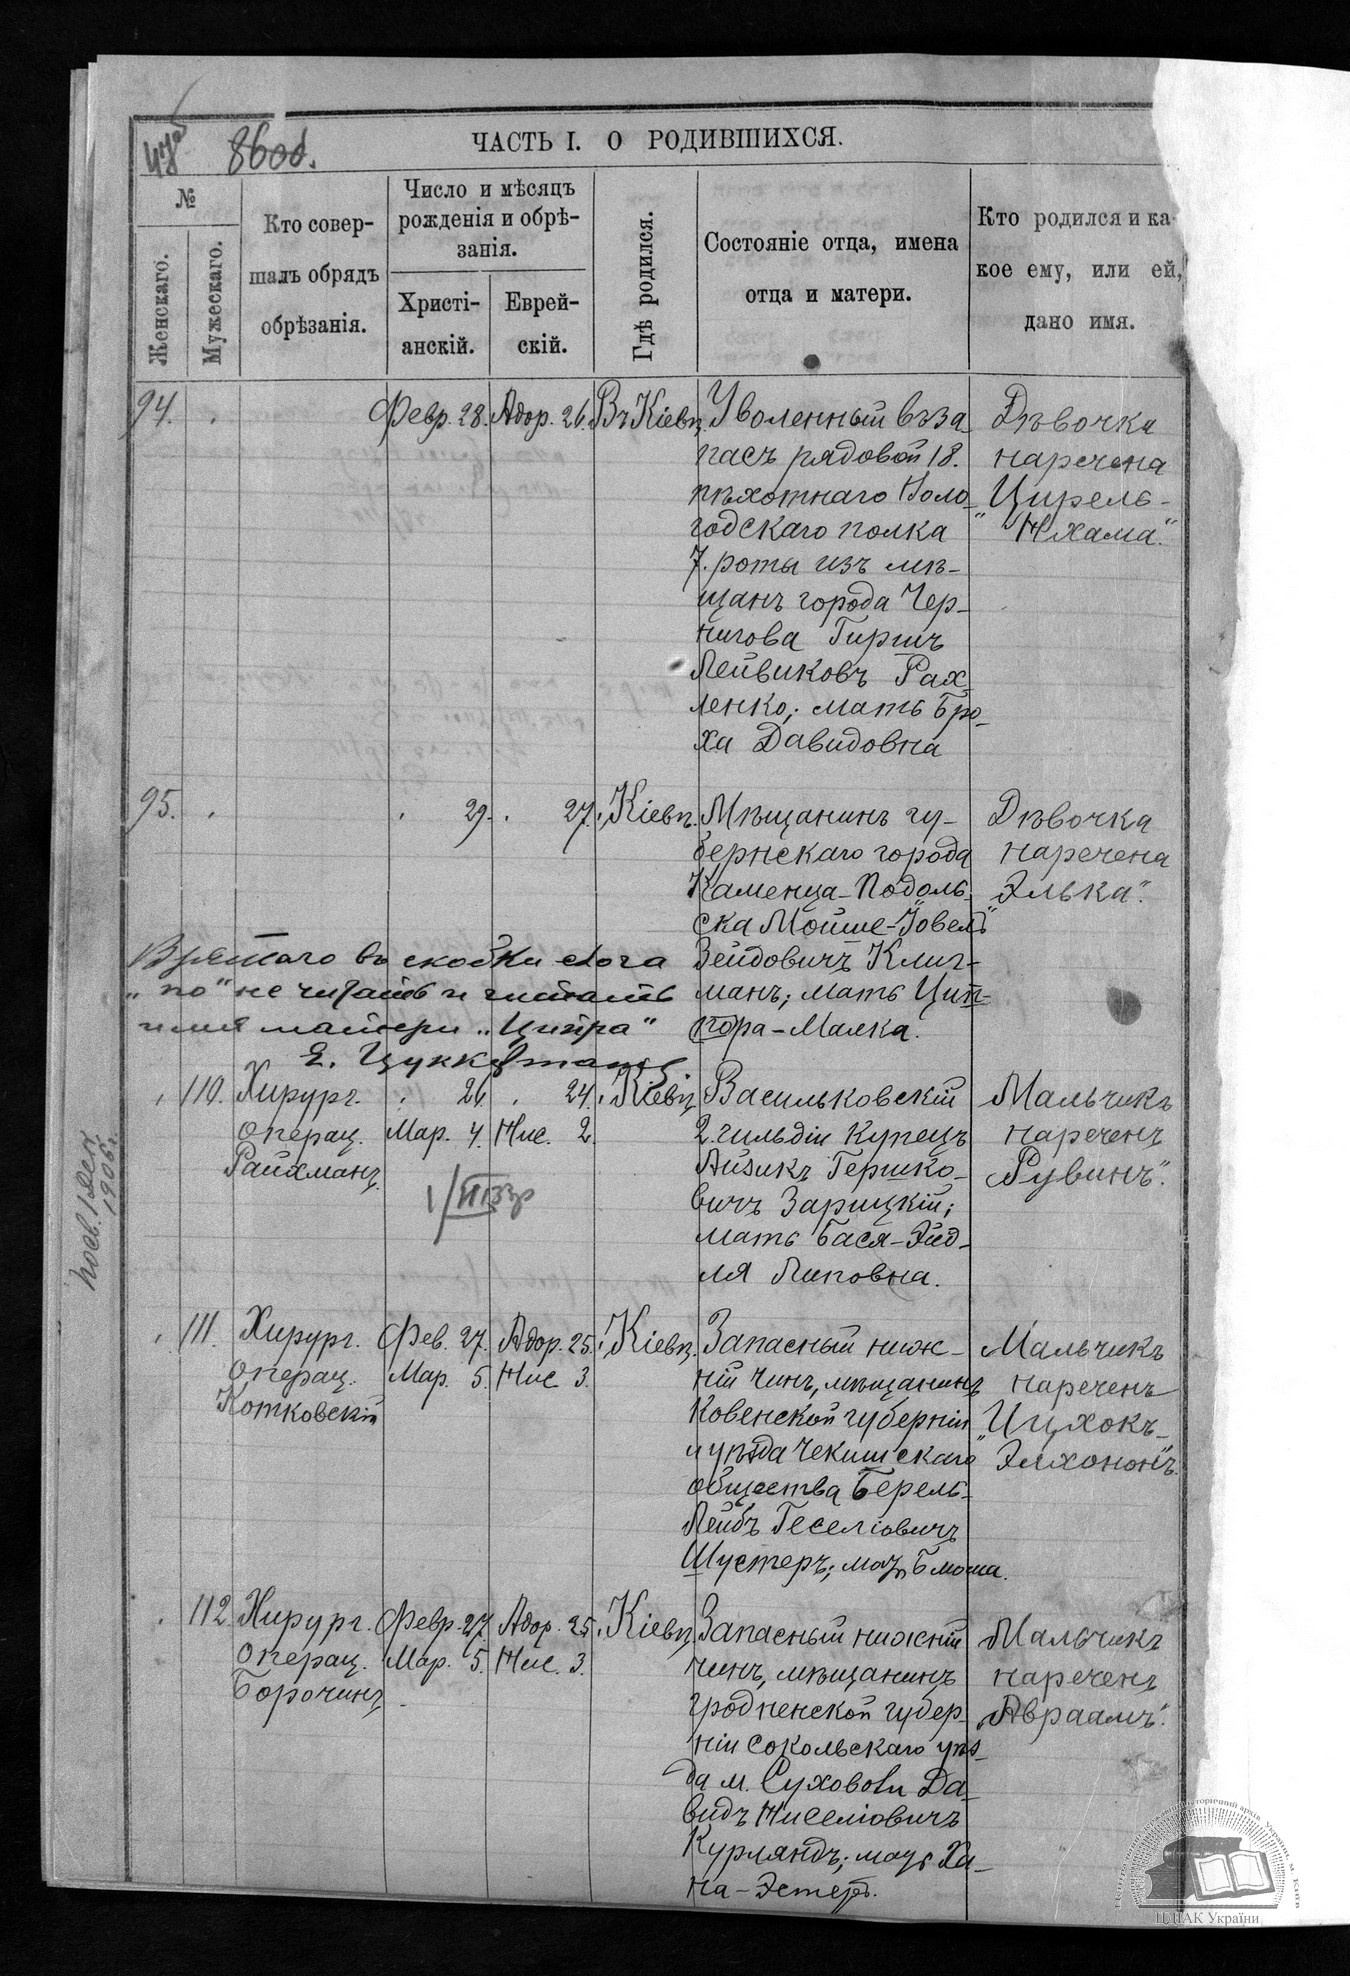 47об
86об.
ЧАСТЬ I. О РОДИВШИХСЯ.
№
Женскаго.
Мужескаго.
Кто совер-
шалъ обрядъ
обрѣзанія.
Число и мѣсяцъ
рожденія и обрѣ-
занія.
Христі-
анскій.
Еврей-
скій.
Гдѣ родился.
Состояніе отца, имена
отца и матери.
Кто родился и ка-
кое ему, или ей,
дано имя.
94.
Февр. 28.
Адор. 26.
Въ Кіевѣ
Уволенный въ за-
пасъ рядовой 18.
пѣхотнаго Воло-
годскаго полка
7. роты изъ мѣ-
щанъ города Чер-
нигова Гиршъ
Лейвиковъ Рах-
ленко; мать Бро-
ха Давидовна
Дѣвочка
наречена
Цирель-
"Нхама".
95.
29.
27.
Кіевѣ.
Мѣщанинъ гу-
бернскаго города
Каменца-Подоль-
ска Мойше-Іовель
Зейдовичъ Клиг-
манъ; мать Цип-
пора-Малка.
Дѣвочка
наречена
Элька".
Взятаго въ скобки слога
"по" не читать и читать
имя матери "Ципра"
Е. Цуккерманъ
110.
Хирург.
операц.
Райхманъ
26.
Мар. 4.
24.
Нис. 2.
Кіевѣ
Васильковскій
2. гильдіи купецъ
Айзикъ Гершко-
вичъ Зарицкій;
мать Бася-Эйд-
ля Липовна.
Мальчикъ
нареченъ
Рувинъ".
111.
Хирург.
операц.
Котковскій
Фев. 27.
Мар. 5.
Адор. 25.
Нис 3.
Кіевѣ.
Запасный ниж-
ній чинъ, мѣщанинъ
Ковенской губерніи
и уѣзда Чекишскаго
общества Берель-
Лейбъ Геселіовичъ
Шустеръ; мать Блюма.
Мальчикъ
нареченъ
Ицхокъ-
"Элхононъ".
112.
Хирург.
операц.
Борочинъ
Февр. 27.
Мар. 5.
Адор. 25.
Нис. 3.
Кіевѣ
Запасный нижній
чинъ, мѣщанинъ
гродненской губер-
ніи Сокольскаго уѣз-
да м. Суховоли Да-
видъ Ниселіовичъ
Курляндъ; мать Ха-
на-Эстеръ.
Мальчикъ
нареченъ
"Авраамъ".
1 Дек.
1906г.
ЦДІАК України